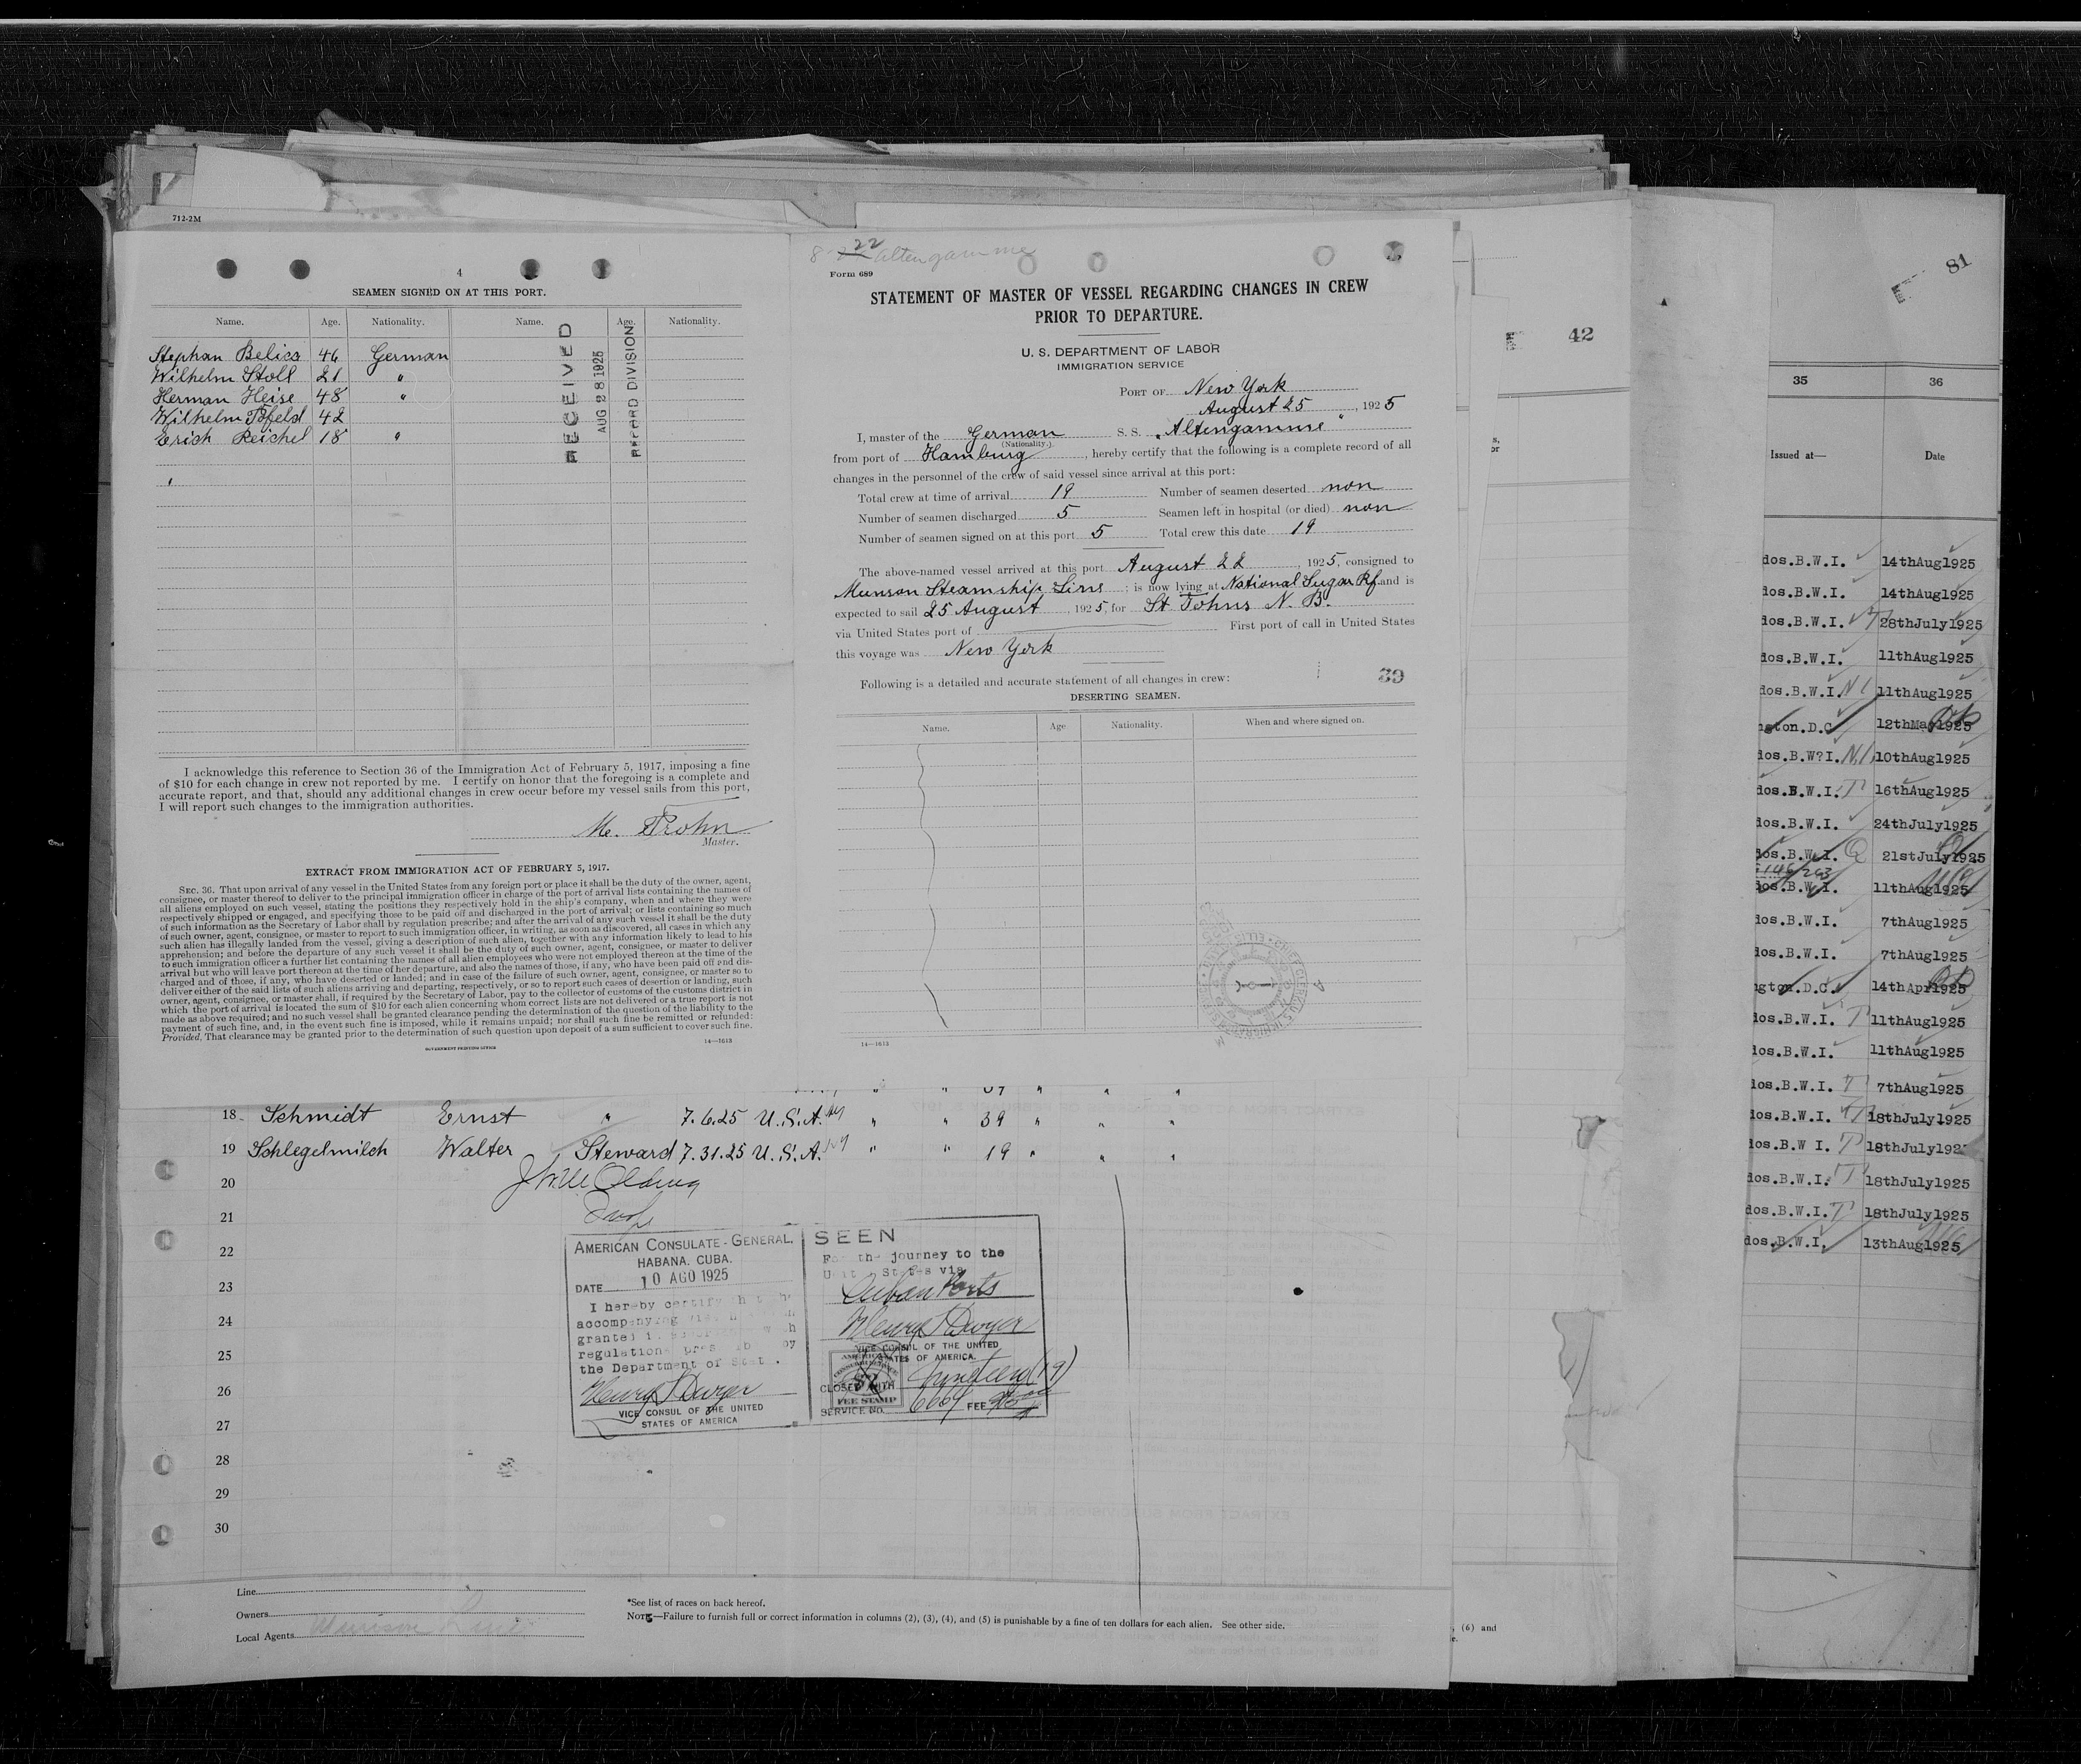 712-2M
4
SEAMEN SIGNED ON AT THIS PORT.
Name. Age. Nationality. Name. Age. Nationality.
Stephan Belica 46 German
Wilhelm Stoll 21 "
Herman Heise 48 "
Wilhelm 42
Erich Reichel 18 "
RECEIVED
AUG 28 1925
RECORD DIVISION
I acknowledge this reference to Section 36 of the Immigration Act of February 5, 1917, imposing a fine
of $10 for each change in crew not reported by me. I certify on honor that the foregoing is a complete and
accurate report, and that, should any additional changes in crew occur before my vessel sails from this port,
I will report such changes to the immigration authorities.
Master.
EXTRACT FROM IMMIGRATION ACT OF FEBRUARY 5, 1917.
SEC. 36. That upon arrival of any vessel in the United States from any foreign port or place it shall be the duty of the owner, agent,
consignee, or master thereof to deliver to the principal immigration officer in charge of the port of arrival lists containing the names of
all aliens employed on such vessel, stating the positions they respectively hold in the ship's company, when and where they were
respectively shipped or engaged, and specifying those to be paid off and discharged in the port of arrival; or lists containing so much
of such information as the Secretary of Labor shall by regulation prescribe; and after the arrival of any such vessel it shall be the duty
of such owner, agent, consignee, or master to report to such immigration officer, in writing, as soon as discovered, all cases in which any
such alien has illegally landed from the vessel, giving a description of such alien, together with any information likely to lead to his
apprehension; and before the departure of any such vessel it shall be the duty of such owner, agent, consignee, or master to deliver
to such immigration officer a further list containing the names of all alien employees who were not employed thereon at the time of the
arrival but who will leave port thereon at the time of her departure, and also the names of those, if any, who have been paid off and dis-
charged and of those, if any, who have deserted or landed; and in case of the failure of such owner, agent, consignee, or master so to
deliver either of the said lists of such aliens arriving and departing, respectively, or so to report such cases of desertion or landing, such
owner, agent, consignee, or master shall, if required by the Secretary of Labor, pay to the collector of customs of the customs district in
which the port of arrival is located the sum of $10 for each alien concerning whom correct lists are not delivered or a true report is not
made as above required; and no such vessel shall be granted clearance pending the determination of the question of the liability to the
payment of such fine, and, in the event such fine is imposed, while it remains unpaid; nor shall such fine be remitted or refunded:
Provided, That clearance may be granted prior to the determination of such question upon deposit of a sum sufficient to cover such fine.
14—1613
GOVERNMENT PRINTING OFFICE
22 Altengamme
Form 689
STATEMENT OF MASTER OF VESSEL REGARDING CHANGES IN CREW
PRIOR TO DEPARTURE.
U. S. DEPARTMENT OF LABOR
IMMIGRATION SERVICE
PORT OF New York
August 25, 1925
I, master of the German S. S. "Altengamme"
(Nationality.)
from port of Hamburg, hereby certify that the following is a complete record of all
changes in the personnel of the crew of said vessel since arrival at this port:
Total crew at time of arrival 19 Number of seamen deserted non
Number of seamen discharged 5 Seamen left in hospital (or died) non
Number of seamen signed on at this port 5 Total crew this date 19
The above-named vessel arrived at this port August 22, 1925, consigned to
Munson Steamship Line; is now lying at National Sugar Rf. and is
expected to sail 25 August, 1925, for St Johns N. B.
via United States port of First port of call in United States
this voyage was New York
39
Following is a detailed and accurate statement of all changes in crew:
DESERTING SEAMEN.
Name. Age Nationality. When and where signed on.
14—1613
18 Schmidt Ernst " 7.6.25 U.S.A. " " 39 " " "
19 Schlegelmilch Walter Steward 7.31.25 U.S.A. " " 19 " " "
20
21
22
23
24
25
26
27
28
29
30
AMERICAN CONSULATE-GENERAL.
HABANA. CUBA.
DATE 10 AGO 1925
I hereby certify
accompanying
regulations
the Department of State.
Henry Dwyer
VICE CONSUL OF THE UNITED
STATES OF AMERICA
SEEN
For the journey to the
United States via
Cuban Ports
Henry Dwyer
VICE CONSUL OF THE UNITED
STATES OF AMERICA.
CLOSED WITH (19)
FEE STAMP
SERVICE NO. FEE
Line
Owners
Local Agents Munson Line
*See list of races on back hereof.
NOTE—Failure to furnish full or correct information in columns (2), (3), (4), and (5) is punishable by a fine of ten dollars for each alien. See other side.
, (6) and
42
81
35 36
Issued at— Date
dos.B.W.I. 14thAug1925
dos.B.W.I. 14thAug1925
dos.B.W.I. 28thJuly1925
dos.B.W.I. 11thAug1925
dos.B.W.I. 11thAug1925
ngton.D.C. 12thMay1925
dos.B.W?I. 10thAug1925
dos.B.W.I. 16thAug1925
dos.B.W.I. 24thJuly1925
dos.B.W.I. 21stJuly1925
dos.B.W.I. 11thAug1925
dos.B.W.I. 7thAug1925
dos.B.W.I. 7thAug1925
ngton.D.C. 14thApr1925
dos.B.W.I. 11thAug1925
dos.B.W.I. 11thAug1925
dos.B.W.I. 7thAug1925
dos.B.W.I. 18thJuly1925
dos.B.W I. 18thJuly192
dos.B.W.I. 18thJuly1925
dos.B.W.I. 18thJuly1925
dos.B.W.I. 13thAug1925